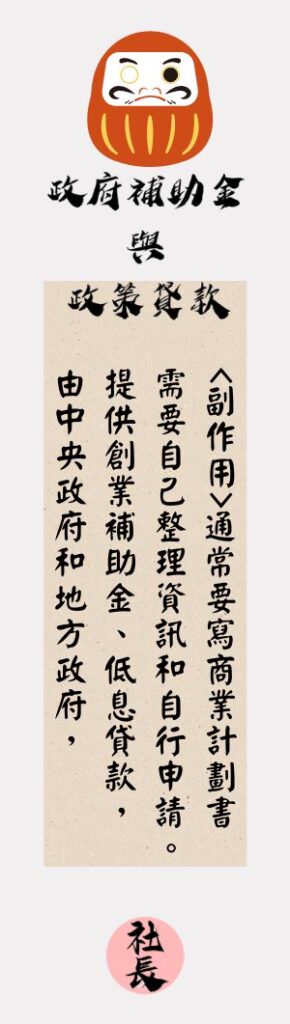 政府補助金
與
政策貸款
由中央政府和地方政府，
提供創業補助金、低息貸款，
需要自己整理資訊和自行申請。
<副作用>通常要寫商業計劃書
社長